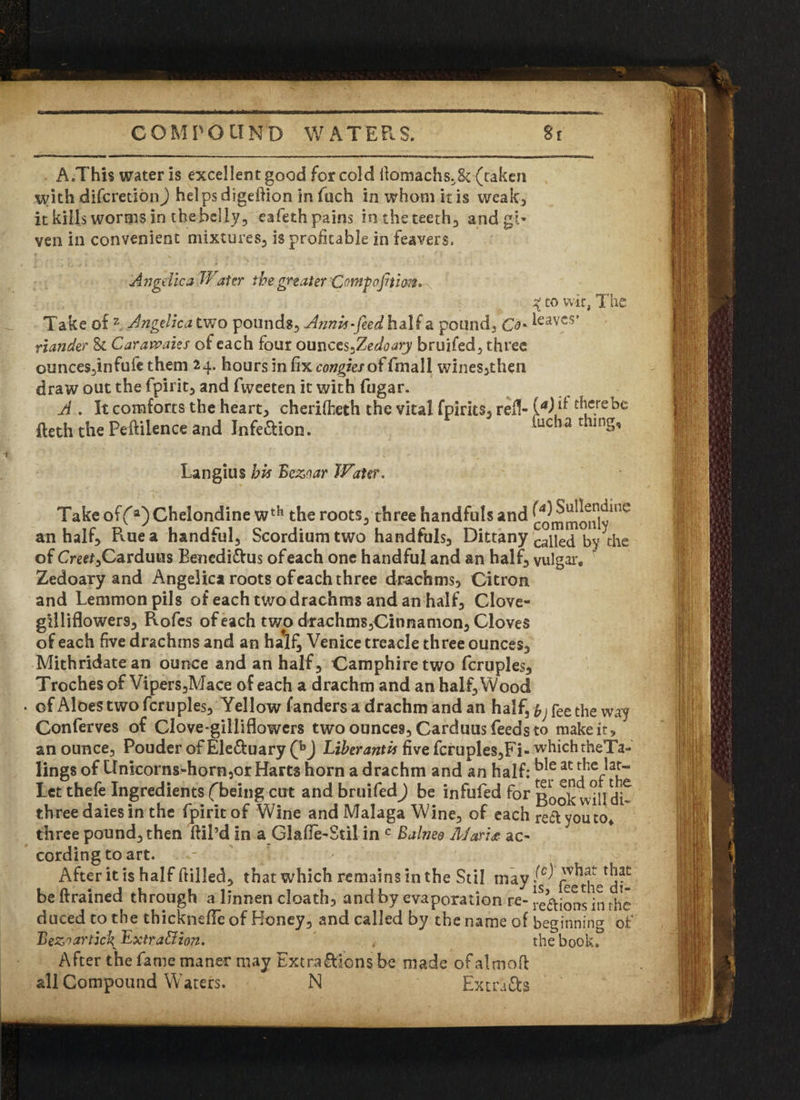 COMPOUND WATERS. 81
A. This water is excellent good for cold ſtomachs, & (taken
with diſcretion) helps digeſtion in ſuch in whom it is weak,
it kills worms in the belly, eaſeth pains in the teeth, and gi-
ven in convenient mixtures, is profitable in feavers.
Angelica Water the greater Compoſition.
Take of z Angelica two pounds, Annis-ſeed half a pound, Co-
z to wit, The
leaves.
riander & Carawaies of each four ounces, Zedoary bruiſed, three
ounces, infuſe them 24. hours in ſix congies of ſmall wines, then
draw out the ſpirit, and ſweeten it with ſugar.
A . It comforts the heart, cheriſheth the vital ſpirits, reſi-
ſteth the Peſtilence and Infection.
(a) if there be
ſuch a thing,
Langius his Bezoar Water.
Take of (a) Chelondine wth the roots, three handfuls and
an half, Rue a handful, Scordium two handfuls, Dittany
of Creet, Carduus Benedictus of each one handful and an half,
(a) Sullendine
commonly
called by the
vulgar.
Zedoary and Angelica roots of each three drachms, Citron
and Lemmon pils of each two drachms and an half, Clove-
gilliflowers, Roſes of each two drachms, Cinnamon, Cloves
of each five drachms and an half, Venice treacle three ounces,
Mithridate an ounce and an half, Camphire two ſcruples,
Troches of Vipers, Mace of each a drachm and an half, Wood
of Aloes two ſcruples, Yellow ſanders a drachm and an half,
Conſerves of Clove-gilliflowers two ounces, Carduus ſeeds
an ounce, Pouder of Electuary (b) Liberantis five ſcruples, Fi-
lings of Unicorns-horn, or Harts horn a drachm and an half:
Let theſe Ingredients (being cut and bruiſed) be infuſed for
three daies in the ſpirit of Wine and Malaga Wine, of each
three pound, then ſtil'd in a Glaſſe-Stil in c Balneo Mariæ ac-
cording to art.
b) ſee the way
to make it,
which the Ta-
ble at the lat-
ter end of the
Book will di-
rect you to.
After it is half ſtilled, that which remains in the Stil may
be ſtrained through a linnen cloath, and by evaporation re-
duced to the thickneſſe of Honey, and called by the name of
Bezoartick Extraction.
(c) what that
is, ſee the di-
rections in the
beginning of
the book.
After the ſame maner may Extractions be made of almoſt
all Compound Waters.
N Extracts